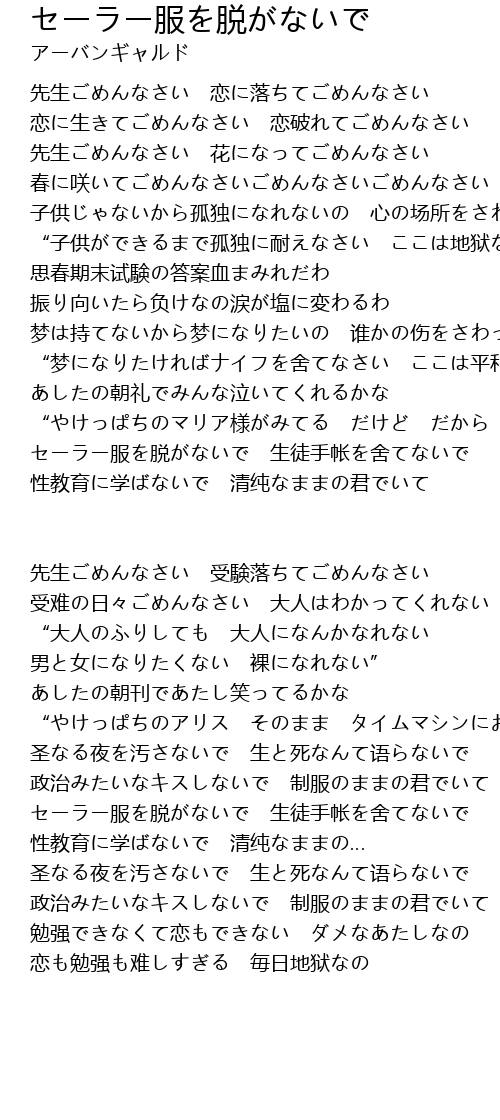 セーラー服を脱がないで
アーバンギャルド
先生ごめんなさい　恋に落ちてごめんなさい
恋に生きてごめんなさい　恋破れてごめんなさい
先生ごめんなさい　花になってごめんなさい
春に咲いてごめんなさいごめんなさいごめんなさい
子供じゃないから孤独になれないの　心の場所をされ
“子供ができるまで孤独に耐えなさい　ここは地獄な
思春期末試験の答案血まみれだわ
振り向いたら负けなの涙が塩に変わるわ
梦は持てないから梦になりたいの　谁かの伤をさわっ
“梦になりたければナイフを舍てなさい　ここは平和
あしたの朝礼でみんな泣いてくれるかな
“やけっぱちのマリア様がみてる　だけど　だから
セーラー服を脱がないで　生徒手帐を舍てないで
性教育に学ばないで　清纯なままの君でいて
先生ごめんなさい　受験落ちてごめんなさい
受难の日々ごめんなさい　大人はわかってくれない
“大人のふりしても　大人になんかなれない
男と女になりたくない　裸になれない”
あしたの朝刊であたし笑ってるかな
“やけっぱちのアリス　そのまま　タイムマシンにお
圣なる夜を汚さないで　生と死なんて语らないで
政治みたいなキスしないで　制服のままの君でいて
セーラー服を脱がないで　生徒手帐を舍てないで
性教育に学ばないで　清纯なままの…
圣なる夜を汚さないで　生と死なんて语らないで
政治みたいなキスしないで　制服のままの君でいて
勉强できなくて恋もできない　ダメなあたしなの
恋も勉强も难しすぎる　毎日地狱なの